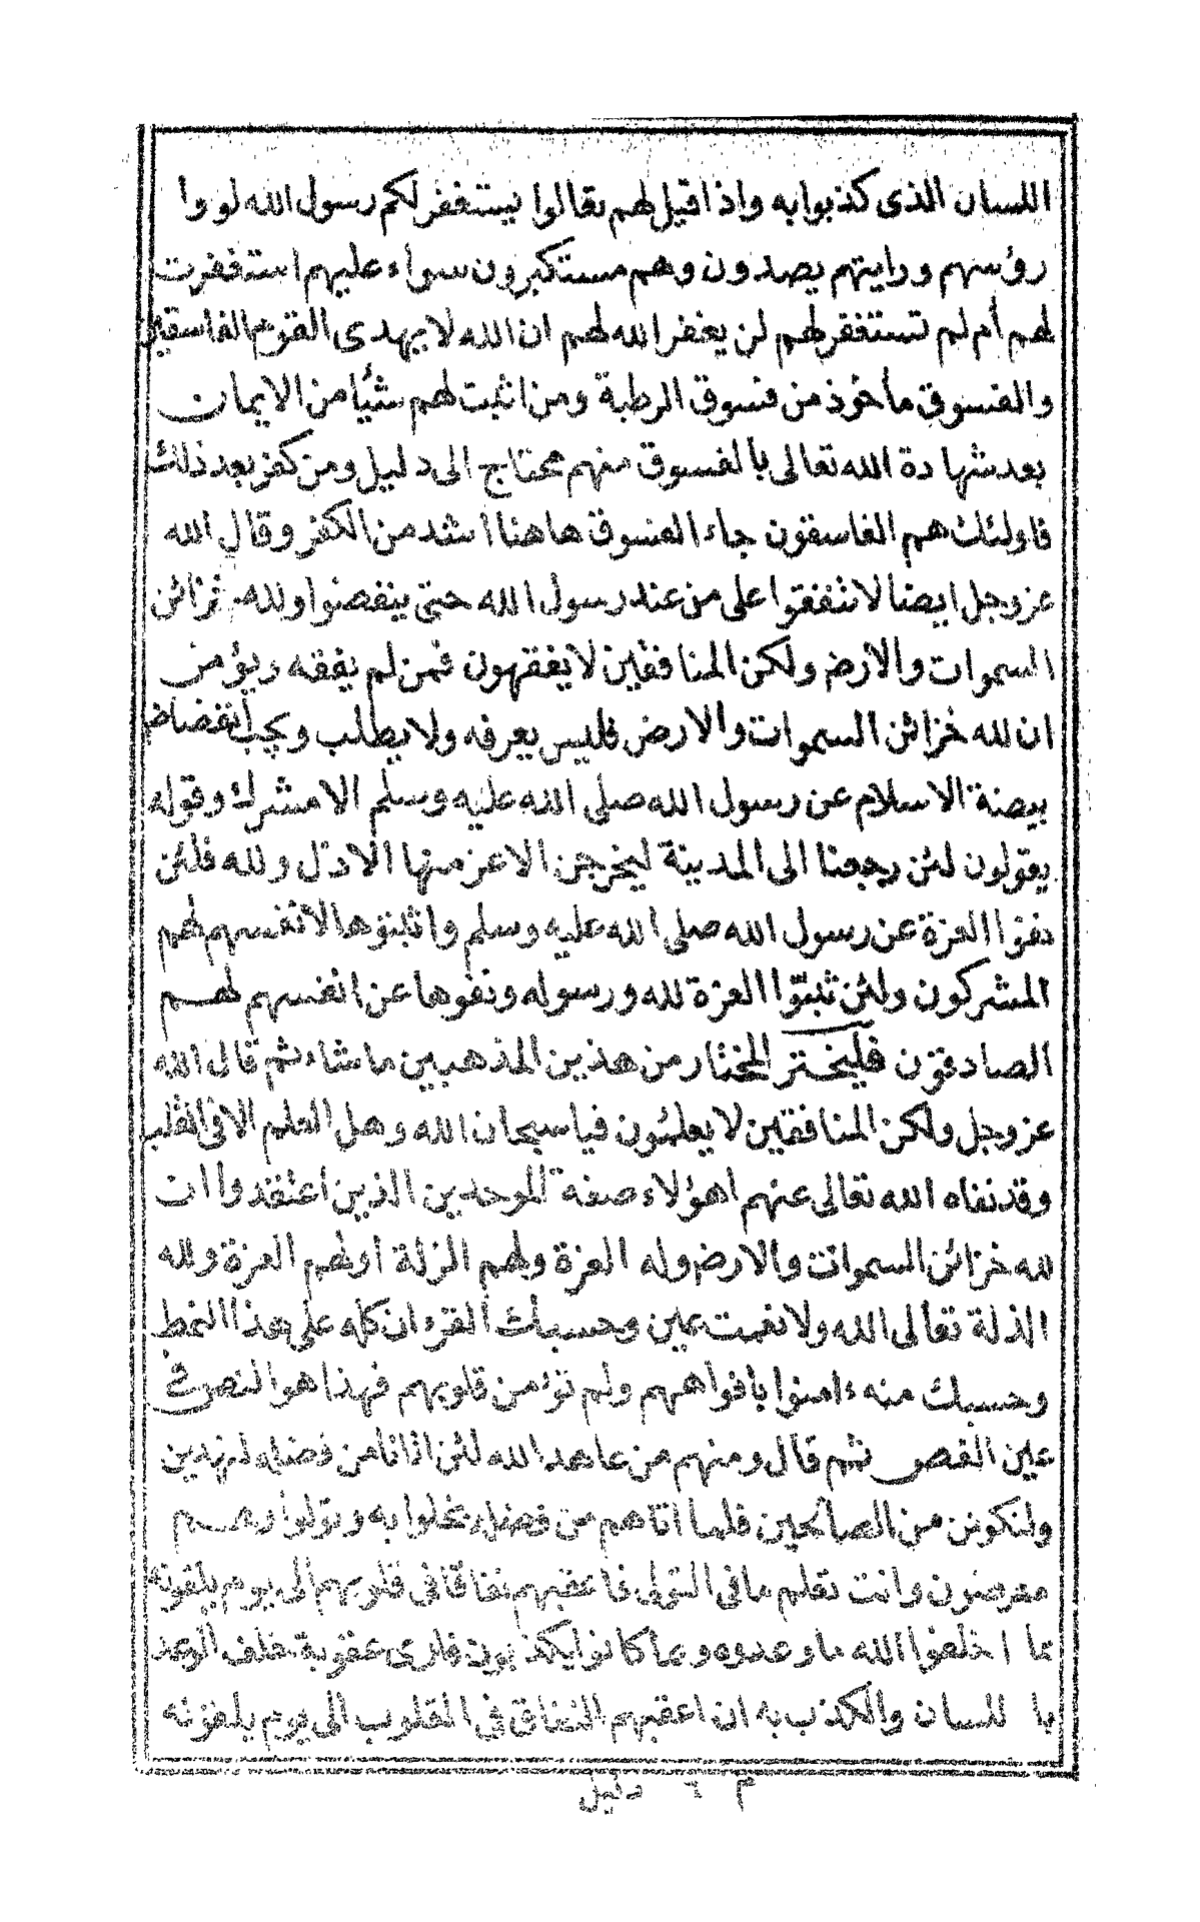 اللسان الذى كذبوا به واذا قيل لهم تعالوا يستغفر لكم رسول الله لووا
رؤسهم ورايتهم يصدون وهم مستكبرون سواء عليهم استغفرت
لهم أم لم تستغفر لهم لن يغفر الله لهم ان الله لا يهدى القوم الفاسقين
والفسوق مأخوذ من فسوق الرطبة ومن اثبت لهم شيًا من الايمان
بعد شهادة الله تعالى بالفسوق منهم محتاج الى دليل ومن كفر بعد ذلك
فاولئك هم الفاسقون جاء الفسوق هاهنا اشد من الكفر وقال الله
عز وجل ايضا لا تنفقوا على من عند رسول الله حتى ينفضوا ولله خزائن
السموات والارض ولكن المنافقين لا يفقهون فمن لم يفقه ويؤمن
ان لله خزائن السموات والارض فليس يعرفه ولا يطلب ويحب انفضاض
بيضة الاسلام عن رسول الله صلى الله عليه وسلم الا مشرك وقوله
يقولون لئن رجعنا الى المدينة ليخرجن الاعز منها الاذل ولله فلئن
نفوا العزة عن رسول الله صلى الله عليه وسلم واثبتوها لانفسهم لهم
المشركون ولئن ثبتوا العزة لله ورسوله ونفوها عن انفسهم لهم
الصادقون فليختر المختار من هذين المذهبين ما شاء ثم قال الله
عز وجل ولكن المنافقين لا يعلمون فيا سبحان الله وهل العلم الا فى القلب
وقد نفاه الله تعالى عنهم اهؤلاء صفة الموحدين الذين اعتقدوا ان
لله خزائن السموات والارض وله العزة ولهم الزلة اولهم العزة ولله
الذلة تعالى الله ولا نعمت عين وحسبك القرءان كله على هذا النمط
وحسبك منه ءامنوا بافواههم ولم تؤمن قلوبهم فهذا هو النص فى
عين القص ثم قال ومنهم من عاهد الله لئن اتانا من فضله لنصدقن
ولنكونن من الصالحين فلما اتاهم من فضله بخلوا به وتولوا وهم
معرضون وانت تعلم ما فى التولى فاعقبهم نفاقا فى قلوبهم الى يوم يلقونه
بما اخلفوا الله ما وعدوه وبما كانوا يكذبون فارى عقوبة خلف الوعد
باللسان والكذب به ان اعقبهم النفاق فى القلوب الى يوم يلقونه
م ٦ دليل